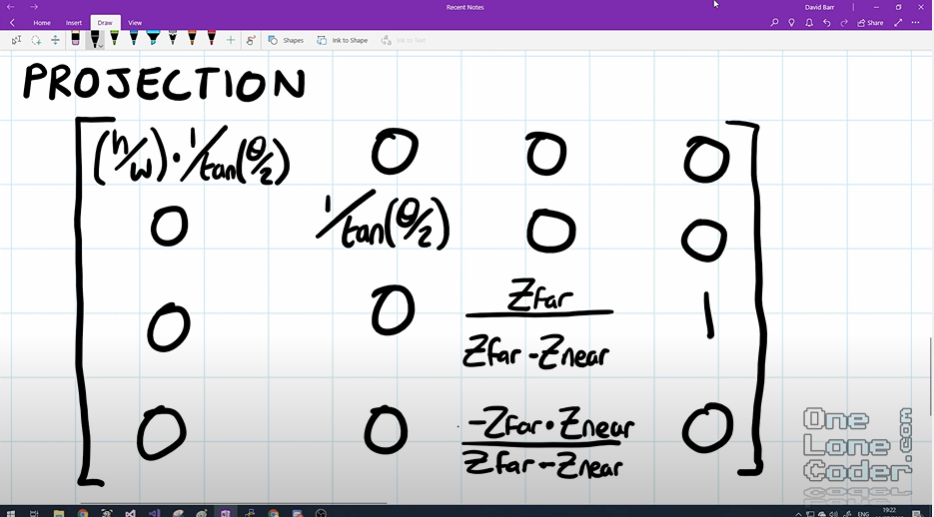 Recent Notes
David Barr
Home Insert Draw View
Share
Shapes Ink to Shape Ink to Text
PROJECTION
(h/w)·1/tan(θ/2) 0 0 0
0 1/tan(θ/2) 0 0
0 0 Zfar 1
Zfar-Znear
0 0 -Zfar·Znear 0
Zfar-Znear
One
Lone
Coder
.com
ENG
19:22